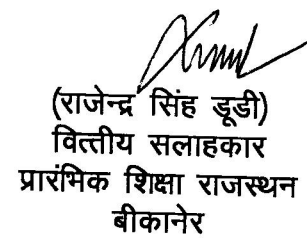 (राजेन्द्र सिंह डूडी)
वित्तीय सलाहकार
प्रारंभिक शिक्षा राजस्थन
बीकानेर